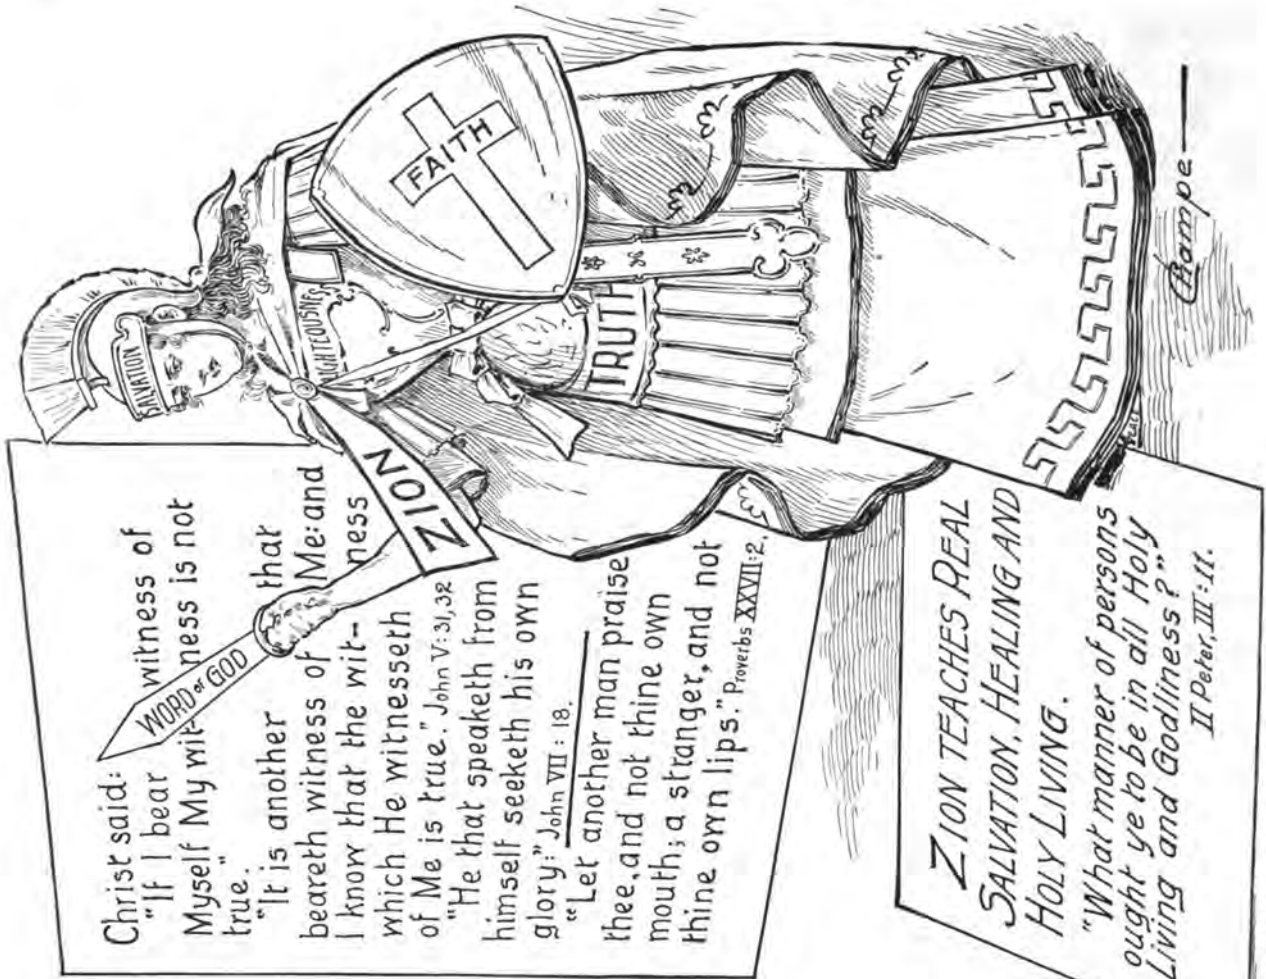 Christ said:
"If I bear witness of
Myself My wit- ness is not
true."
"It is another that
beareth witness of Me: and
I know that the wit- ness
which He witnesseth
of Me is true." John V: 31, 32
"He that speaketh from
himself seeketh his own
glory:" John VII: 18.
"Let another man praise
thee, and not thine own
mouth; a stranger, and not
thine own lips." Proverbs XXVII:2.
WORD OF GOD
ZION
SALVATION
IGHTEOUSNES
FAITH
TRUTH
ZION TEACHES REAL
SALVATION, HEALING AND
HOLY LIVING.
"What manner of persons
ought ye to be in all Holy
Living and Godliness?"
II Peter, III:11.
Champe